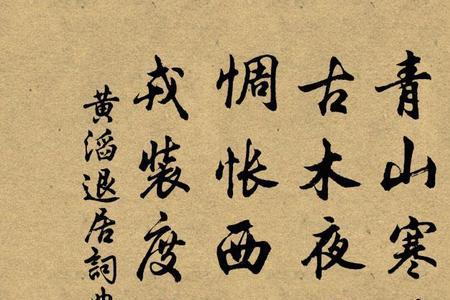 青山寒
古木夜
惆怅西
戎装度
黄滔退居詞